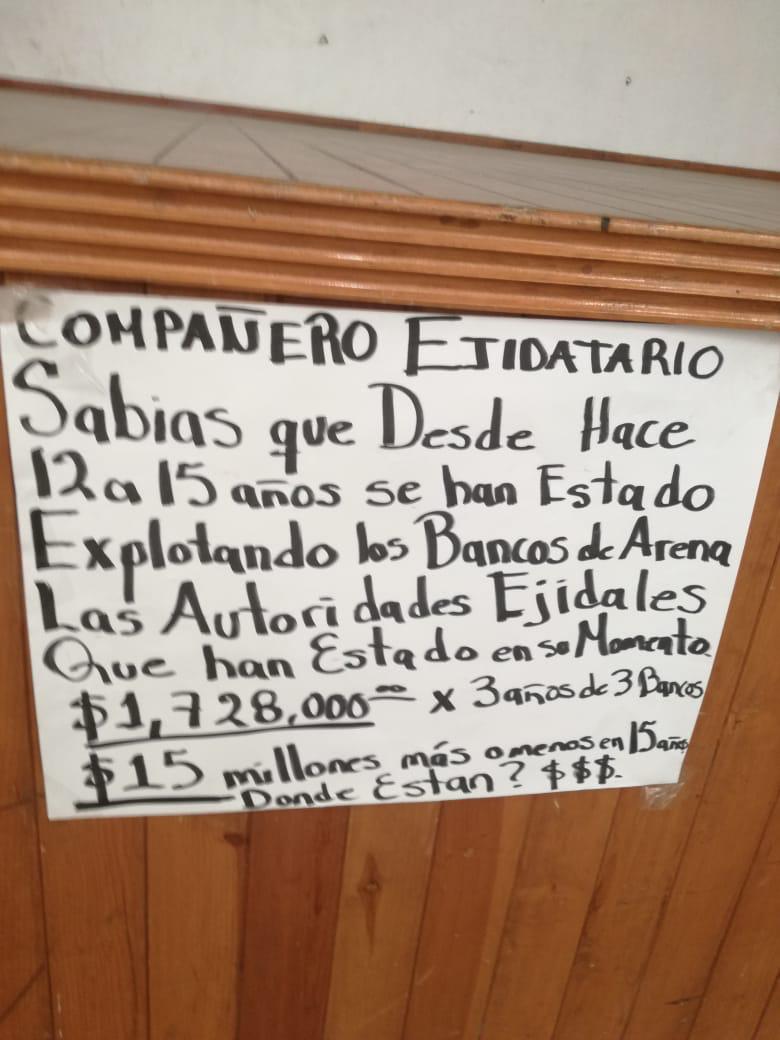 COMPAÑERO EJIDATARIO
Sabias que Desde Hace
12 a 15 años se han Estado
Explotando los Bancos de Arena
Las Autoridades Ejidales
Que han Estado en so Momento.
$1,728,000⁰⁰ x 3 años de 3 Bancos
$15 millones más o menos en 15 años
Donde Estan? $$$.